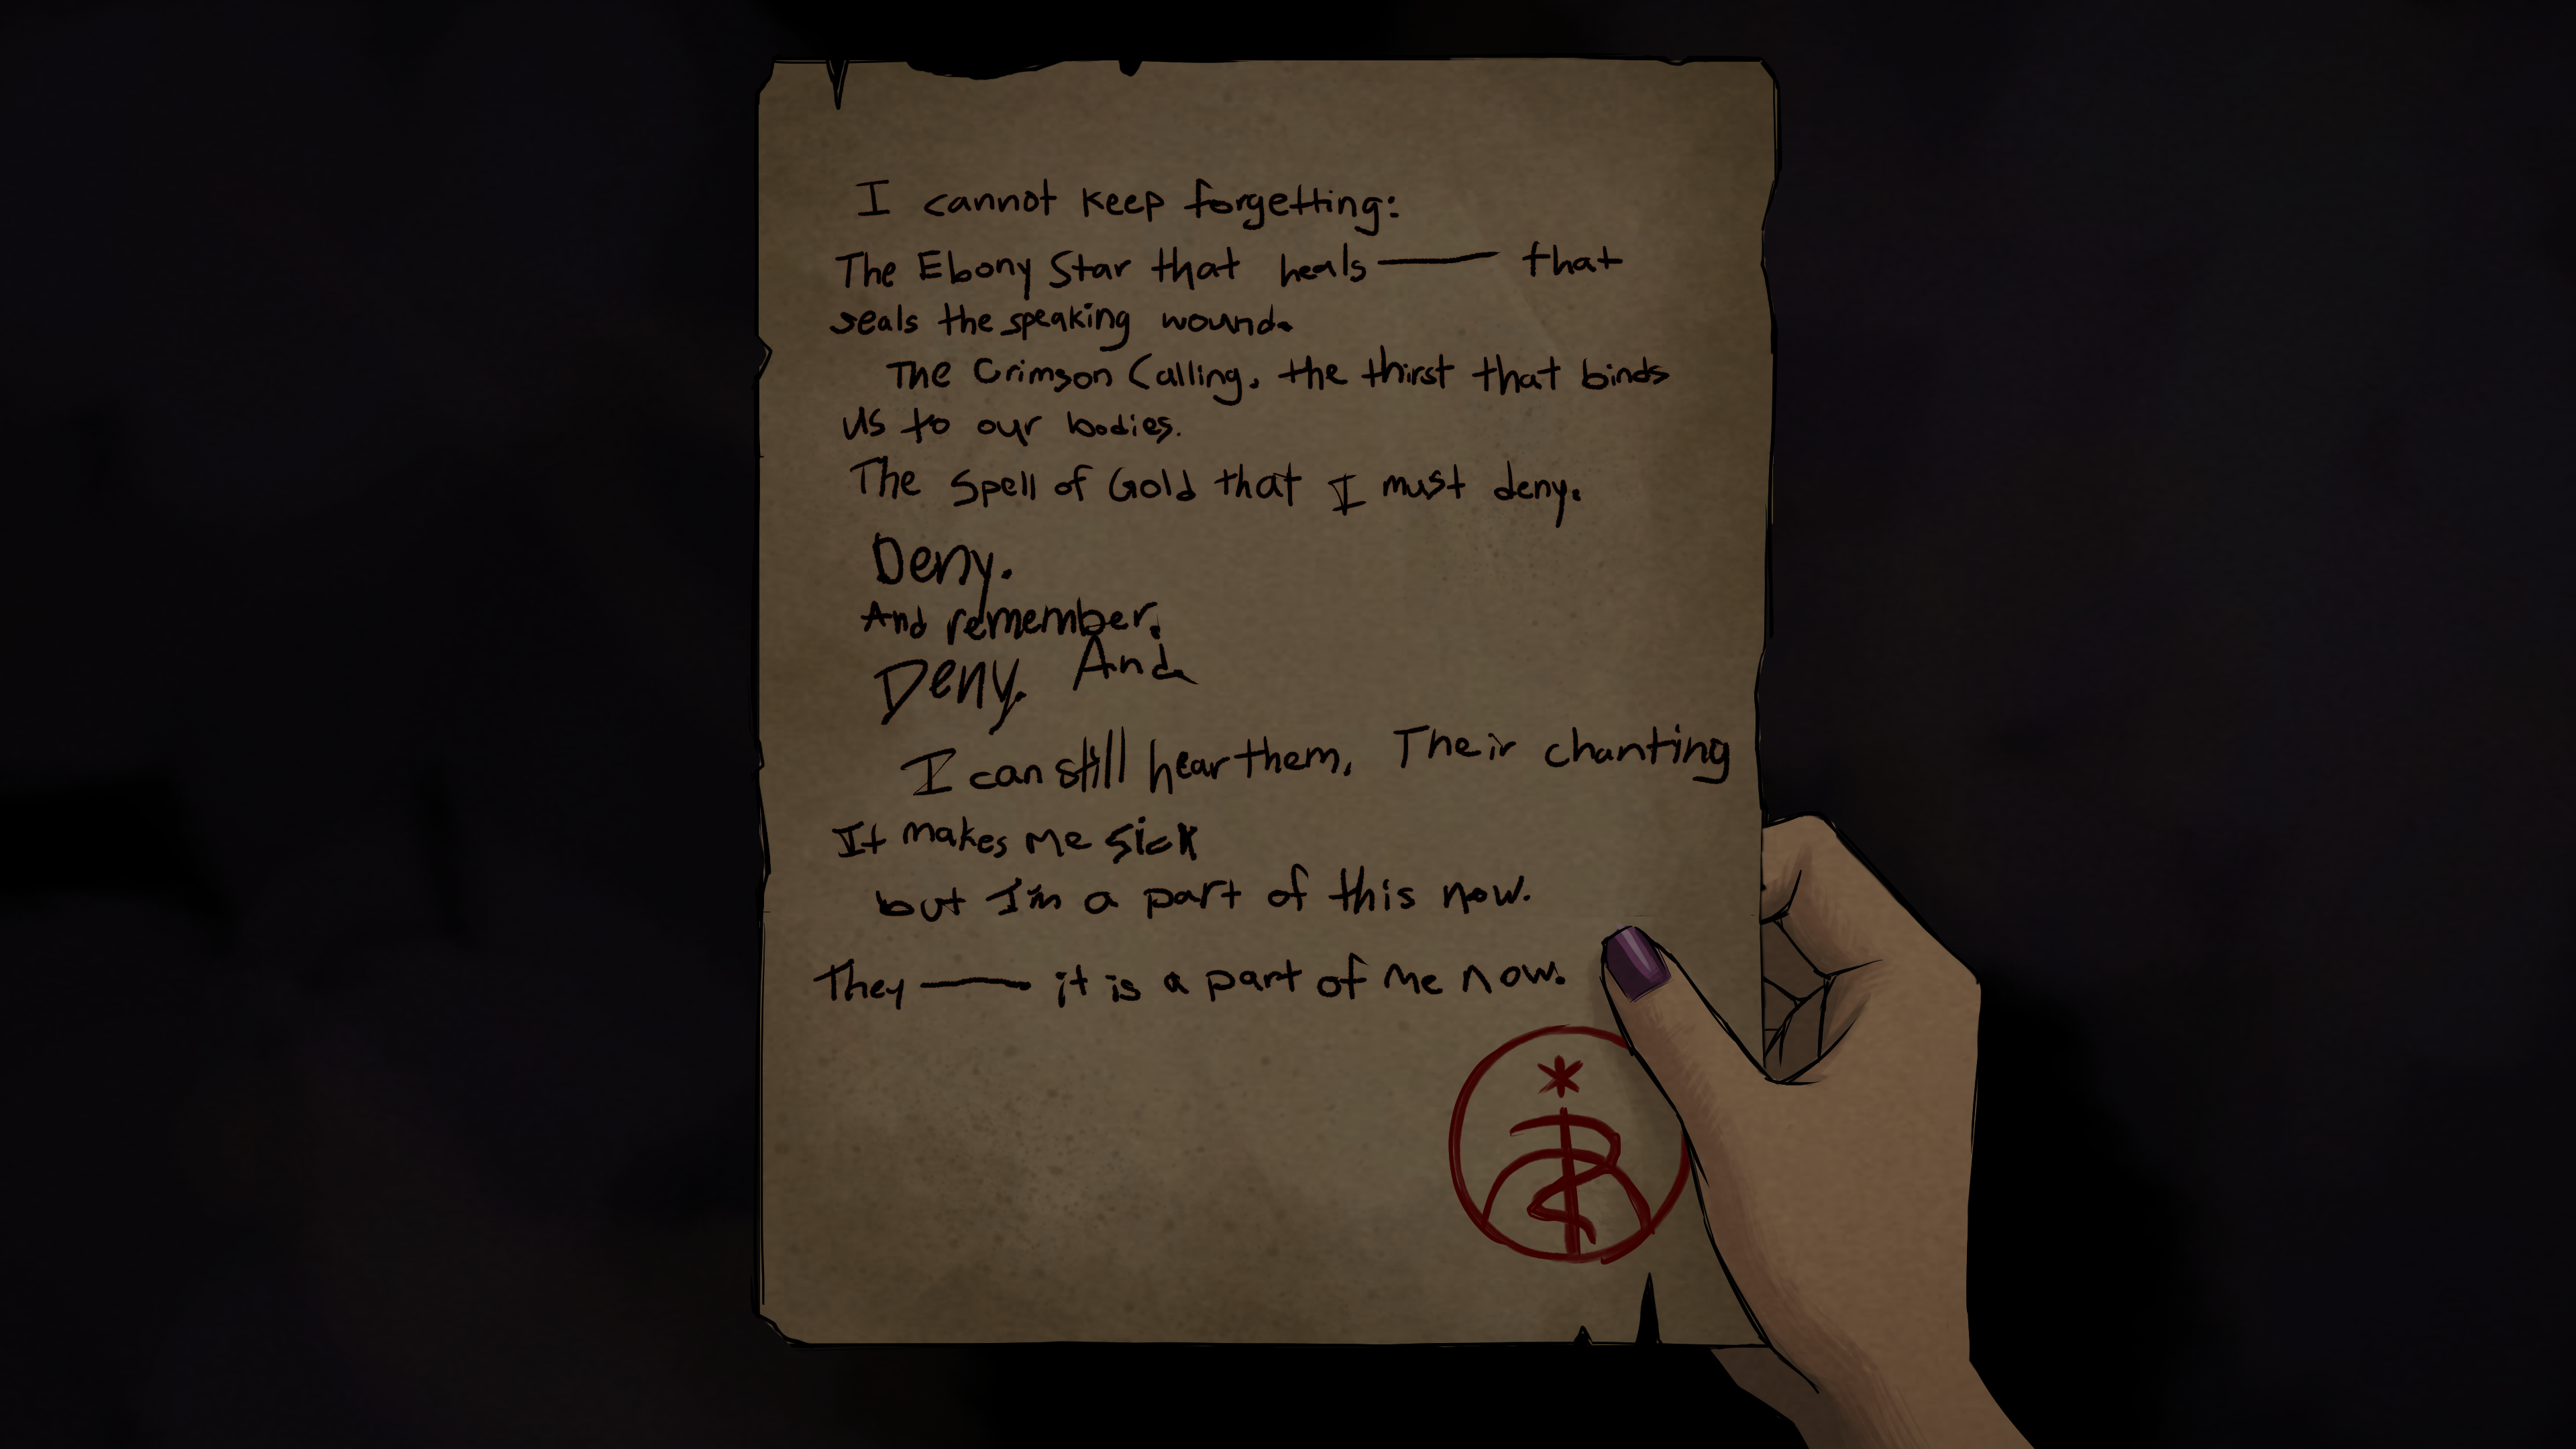 I cannot keep forgetting:
The Ebony Star that heals —— that
seals the speaking wound.
The Crimson Calling, the thirst that binds
us to our bodies.
The Spell of Gold that I must deny.
Deny.
And remember.
Deny. And
I can still hear them. Their chanting
It makes me sick
but I'm a part of this now.
They —— it is a part of me now.